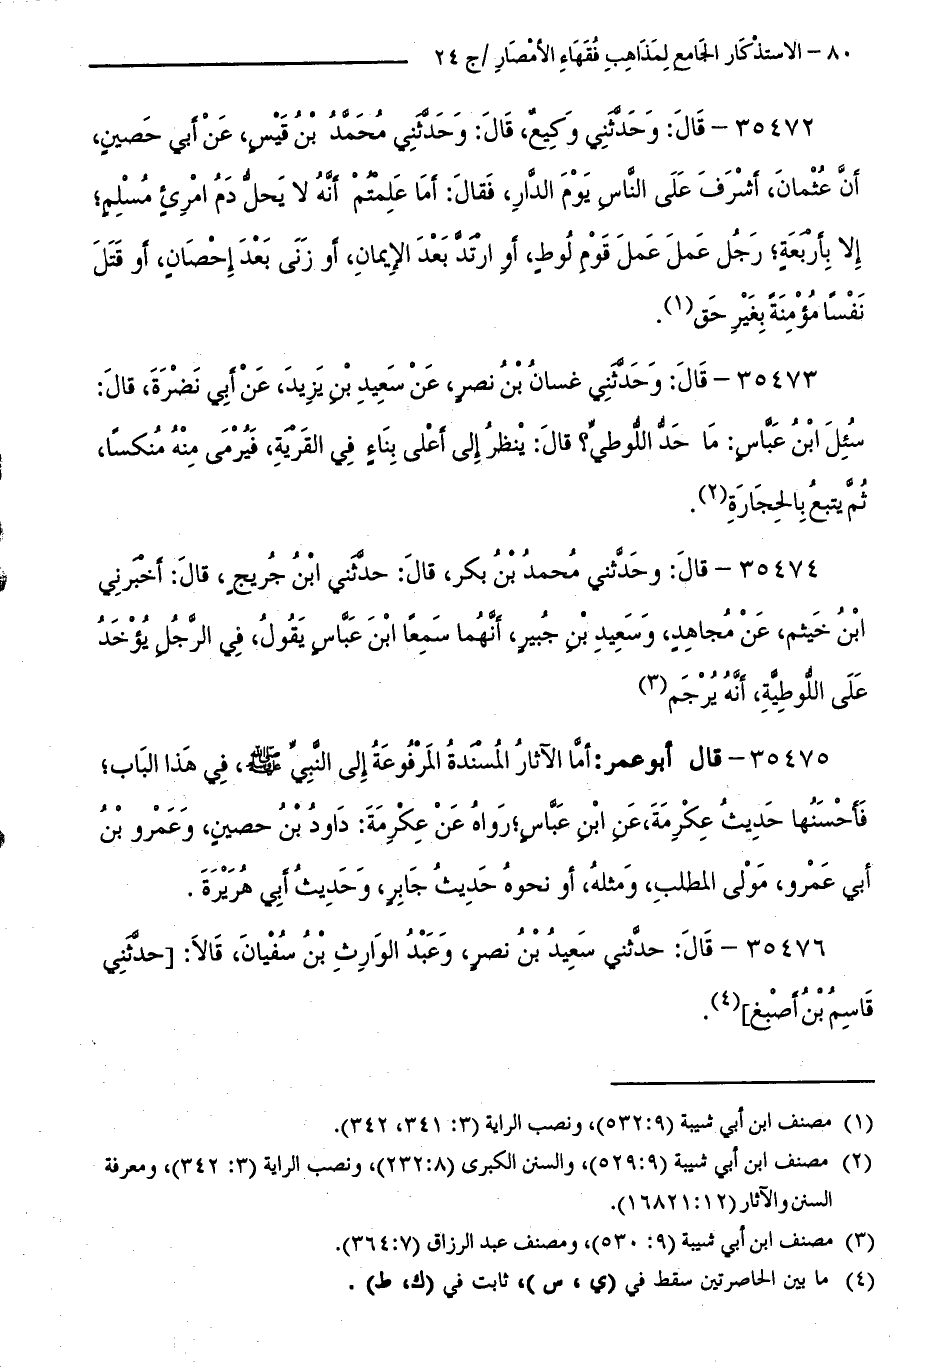 ٨٠ – الاستذْكَار الجَامع لِمَذَاهِبِ فُقَهَاءِ الأمْصَارِ / ج ٢٤
٣٥٤٧٢ – قَالَ: وَحَدَّثَنِي وَكِيعٌ، قَالَ: وَحَدَّثَنِي مُحَمَّدُ بْنُ قَيْسٍ، عَنْ أبي حَصينٍ،
أنَّ عُثْمانَ، أشْرَفَ عَلَى النَّاسِ يَوْمَ الدَّارِ، فَقالَ: أمَا عَلِمتُمْ أنَّهُ لا يَحلُّ دَمُ امْرِئٍ مُسْلِمٍ؛
إلا بِأَرْبَعَةٍ؛ رَجُل عَملَ عَملَ قَوْمِ لُوطٍ، أوِ ارْتَدَّ بَعْدَ الإيمانِ، أو زَنَى بَعْدَ إحْصَانٍ، أو قَتَلَ
نَفْسًا مُؤْمِنَةً بِغَيْرِ حَق(١).
٣٥٤٧٣ – قَالَ: وَحَدَّثَنِي غسانُ بْنُ نصرٍ، عَنْ سَعِيدِ بْنِ يَزِيدَ، عَنْ أَبِي نَضْرَةَ، قالَ:
سُئِلَ ابْنُ عَبَّاسٍ: مَا حَدُّ اللُّوطيِّ؟ قالَ: يُنْظرُ إلى أعْلى بِنَاءٍ فِي القَرْيَةِ، فَيُرْمَى مِنْهُ مُنكسًا،
ثُمَّ يتبعُ بِالحِجَارَةِ(٢).
٣٥٤٧٤ – قَالَ: وحَدَّثَني مُحمدُ بْنُ بكر، قالَ: حدَّثَني ابْنُ جُريجٍ، قالَ: أخْبَرني
ابْنُ خَيثم، عَنْ مُجاهدٍ، وَسَعِيدِ بْنِ جُبيرٍ، أنَّهُما سَمِعًا ابْنَ عَبَّاسٍ يَقُولُ، فِي الرَّجُلِ يُؤْخَذُ
عَلَى اللُّوطِيَّةِ، أنَّهُ يُرْجَم(٣)
٣٥٤٧٥ – قال أبو عمر: أمَّا الآثارُ المُسْنَدةُ المَرْفُوعَةُ إلى النَّبِيِّ ﷺ، فِي هَذا البَابِ؛
فَأَحْسَنُها حَدِيثُ عِكْرِمَةَ، عَنِ ابْنِ عَبَّاسٍ؛ رَواهُ عَنْ عِكْرِمَةَ: دَاودُ بْنُ حصينٍ، وَعَمْرو بْنُ
أبي عَمْرو، مَوْلى المطلبِ، وَمثلهُ، أو نحوهُ حَدِيثُ جَابِرٍ، وَحَدِيثُ أبي هُرَيْرَةَ .
٣٥٤٧٦ – قَالَ: حدَّثني سَعِيدُ بْنُ نصرٍ، وَعَبْدُ الوَارِثِ بْنُ سُفْيانَ، قَالاَ: [حدَّثَنِي
قَاسِمُ بْنُ أصْبغ](٤).
(١) مصنف ابن أبي شيبة (٥٣٢:٩)، ونصب الراية (٣: ٣٤١، ٣٤٢).
(٢) مصنف ابن أبي شيبة (٥٢٩:٩)، والسنن الكبرى (٢٣٢:٨)، ونصب الراية (٣: ٣٤٢)، ومعرفة
السنن والآثار (١٦٨٢١:١٢).
(٣) مصنف ابن أبي شيبة (٩: ٥٣٠)، ومصنف عبد الرزاق (٣٦٤:٧).
(٤) ما بين الحاصرتين سقط في (ي ، س )، ثابت في (ك، ط) .